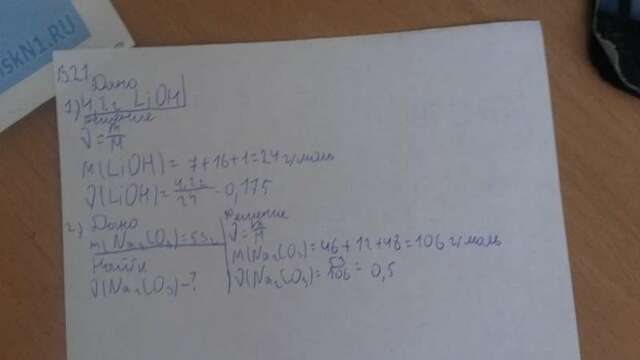 1521
Дано
1) 4,2г LiOH
решение
J = m/M
M(LiOH) = 7+16+1=24 г/моль
J(LiOH) = 4,2/24 = 0,175
2) Дано
m(Na₂CO₃)=53г
Найти
J(Na₂CO₃)-?
решение
J = m/M
M(Na₂CO₃)=46+12+48=106 г/моль
J(Na₂CO₃)= 53/106 = 0,5
SKN1.RU